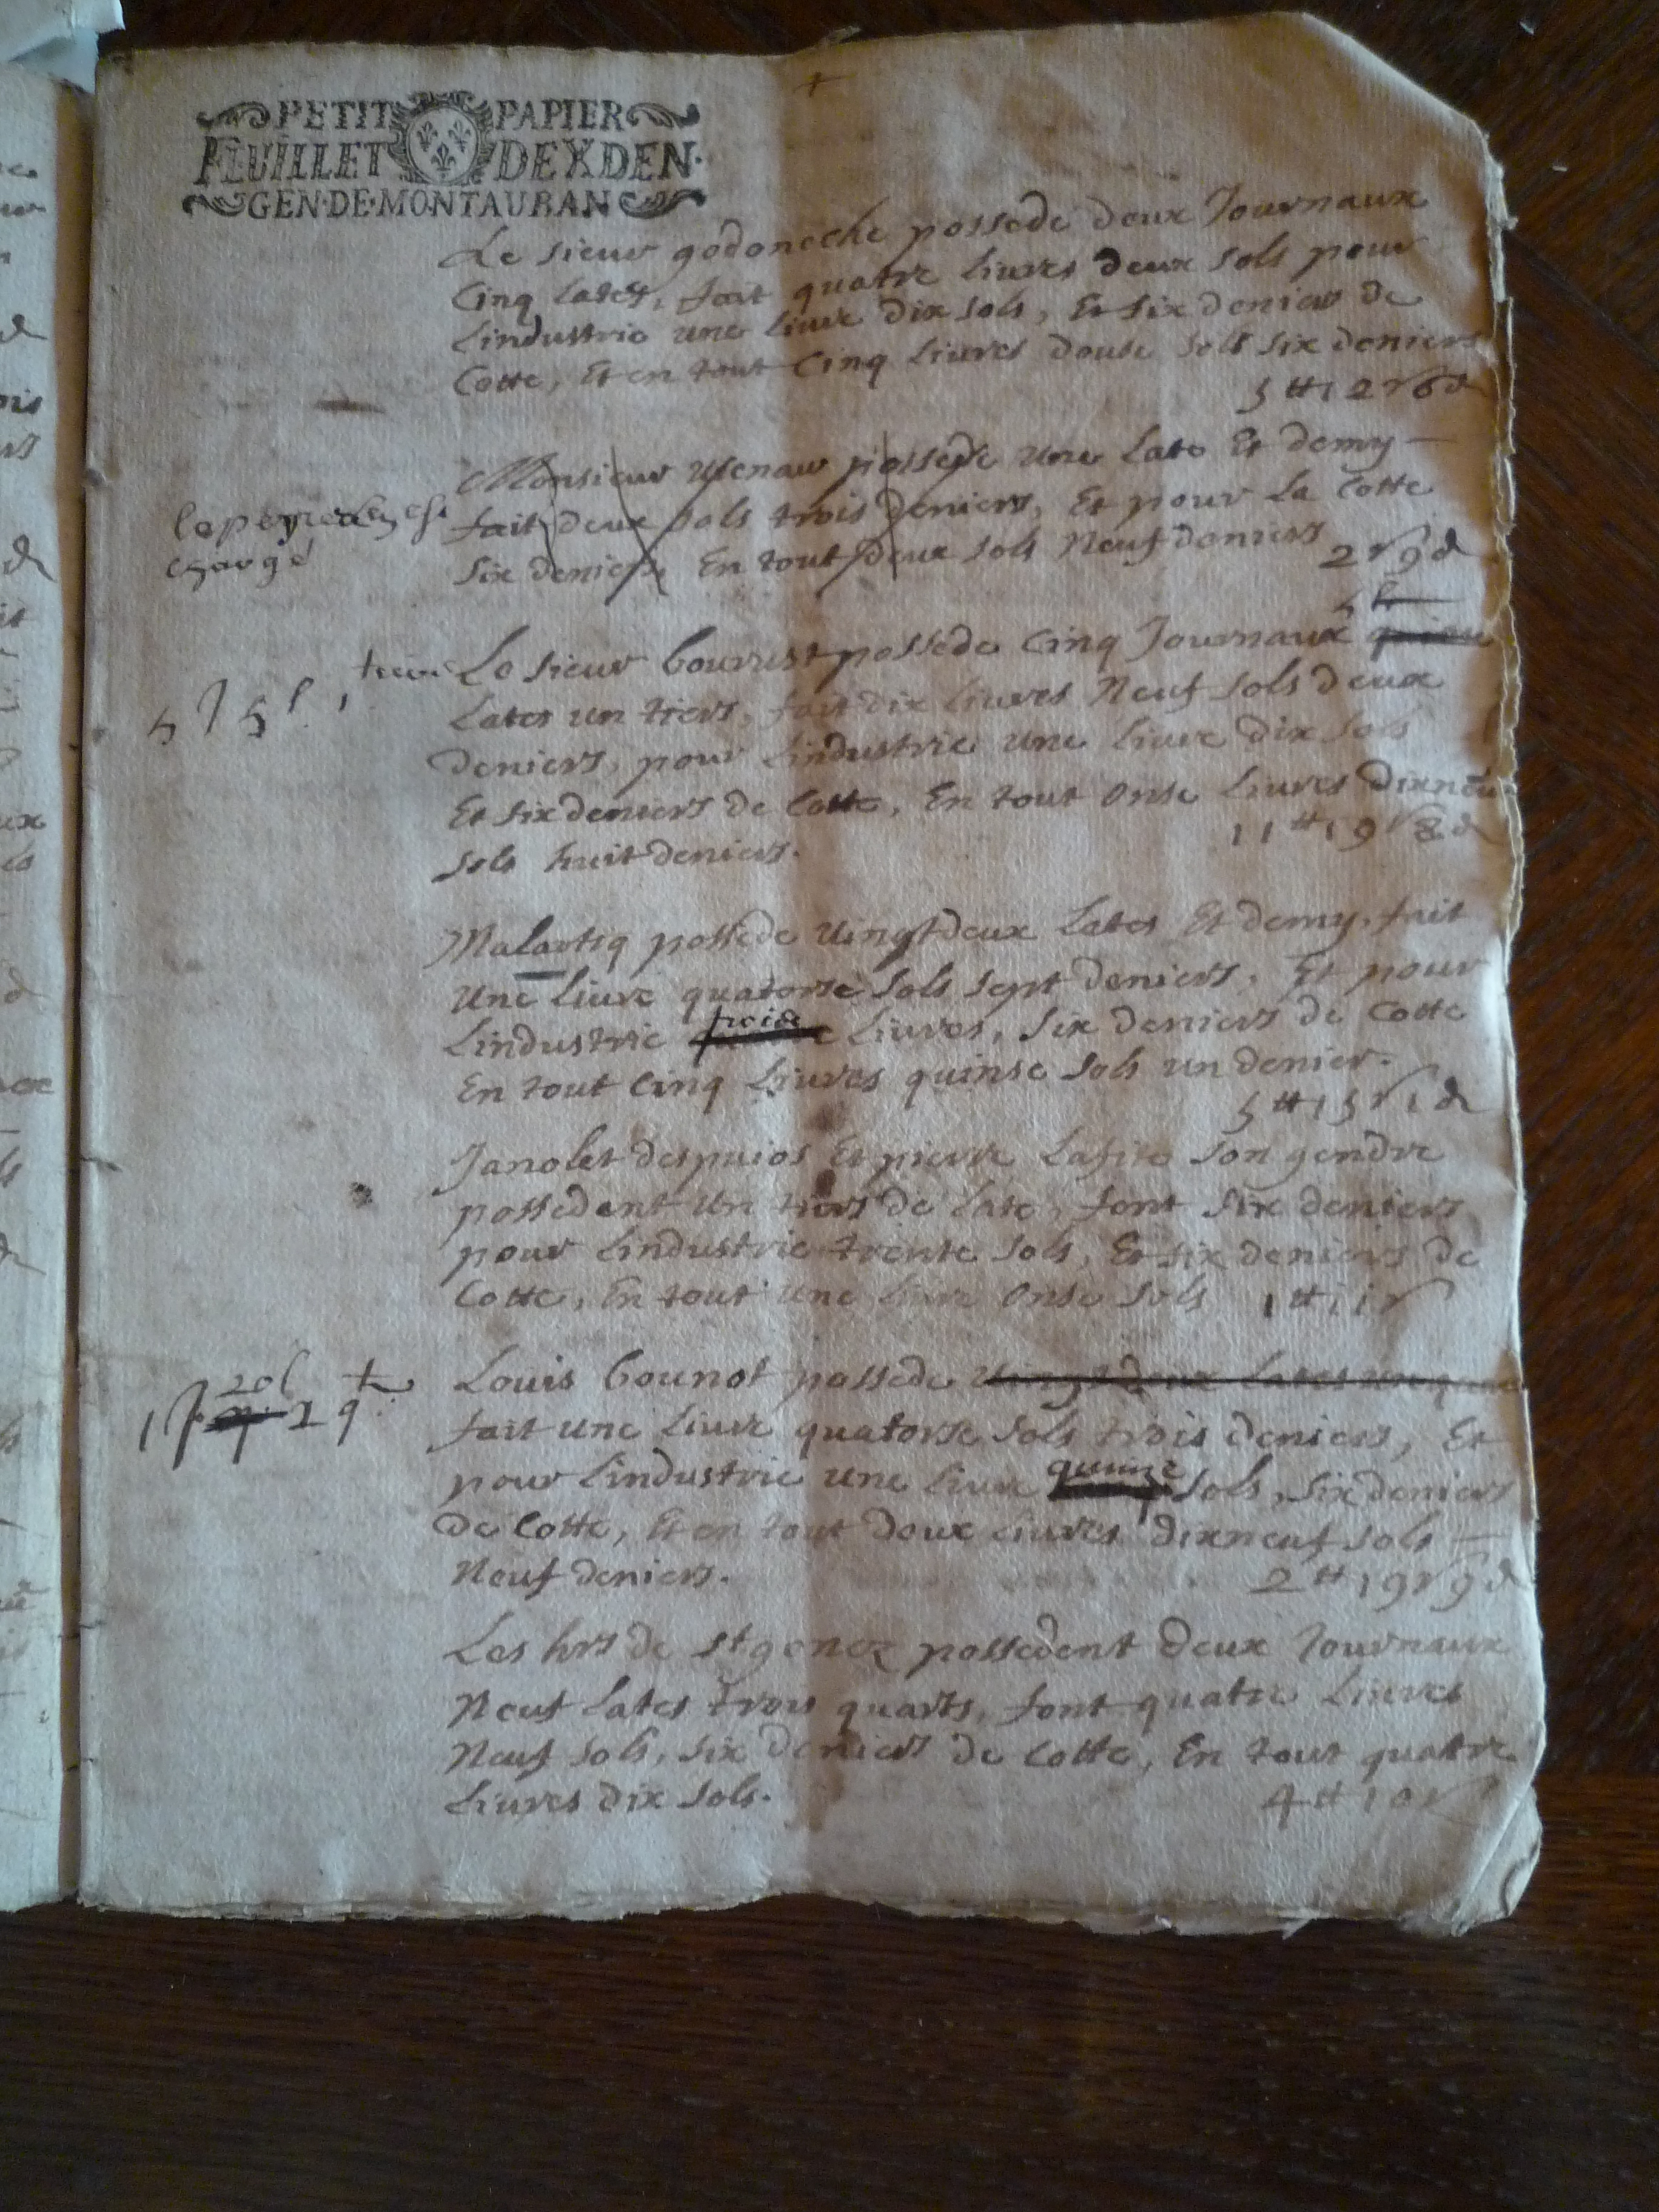 PETIT PAPIER
FEUILLET DE X DEN.
GEN·DE·MONTAUBAN
Le sieur godoneche possede deux Journaux
Cinq lates, fait quatre liures deux sols pour
Lindustrie une liure dix sols, Et six deniers de
Cotte, Et en tout Cinq liures douse sols six deniers
5 tt 12 s 6 d
Monsieur possede une late Et demy
fait deux sols trois deniers, Et pour la Cotte
six deniers, En tout deux sols Neuf deniers
2 s 9 d
chargé
5 l
Le sieur bourust possede Cinq Journaux
5 J 5 l 1 tiers
lates un tiers, fait dix liures Neuf sols deux
deniers, pour Lindustrie une liure dix sols
Et six deniers de Cotte, En tout onse liures dixneu
sols huit deniers.
11 tt 19 s 8 d
Malartiq possede vingt deux lates Et demy, fait
une liure quatorse sols sept deniers, Et pour
Lindustrie liures, six deniers de Cotte
En tout Cinq liures quinse sols un denier.
5 tt 15 s 1 d
Janolet despuios Et pierre lafite son gendre
possedent un tiers de late, font six deniers
pour Lindustrie trente sols, Et six deniers de
Cotte, En tout une liure onse sols 1 tt 11 s
Louis bounot possede vingt deux lates
20 l
fait une liure quatorse sols trois deniers, Et
pour Lindustrie une liure quinze sols, six deniers
de Cotte, Et en tout deux liures dixneuf sols
Neuf deniers.
2 tt 19 s 9 d
Les hrs de st genez possedent deux Journaux
Neuf lates trois quarts, font quatre liures
Neuf sols, six deniers de Cotte, En tout quatre
liures dix sols.
4 tt 10 s